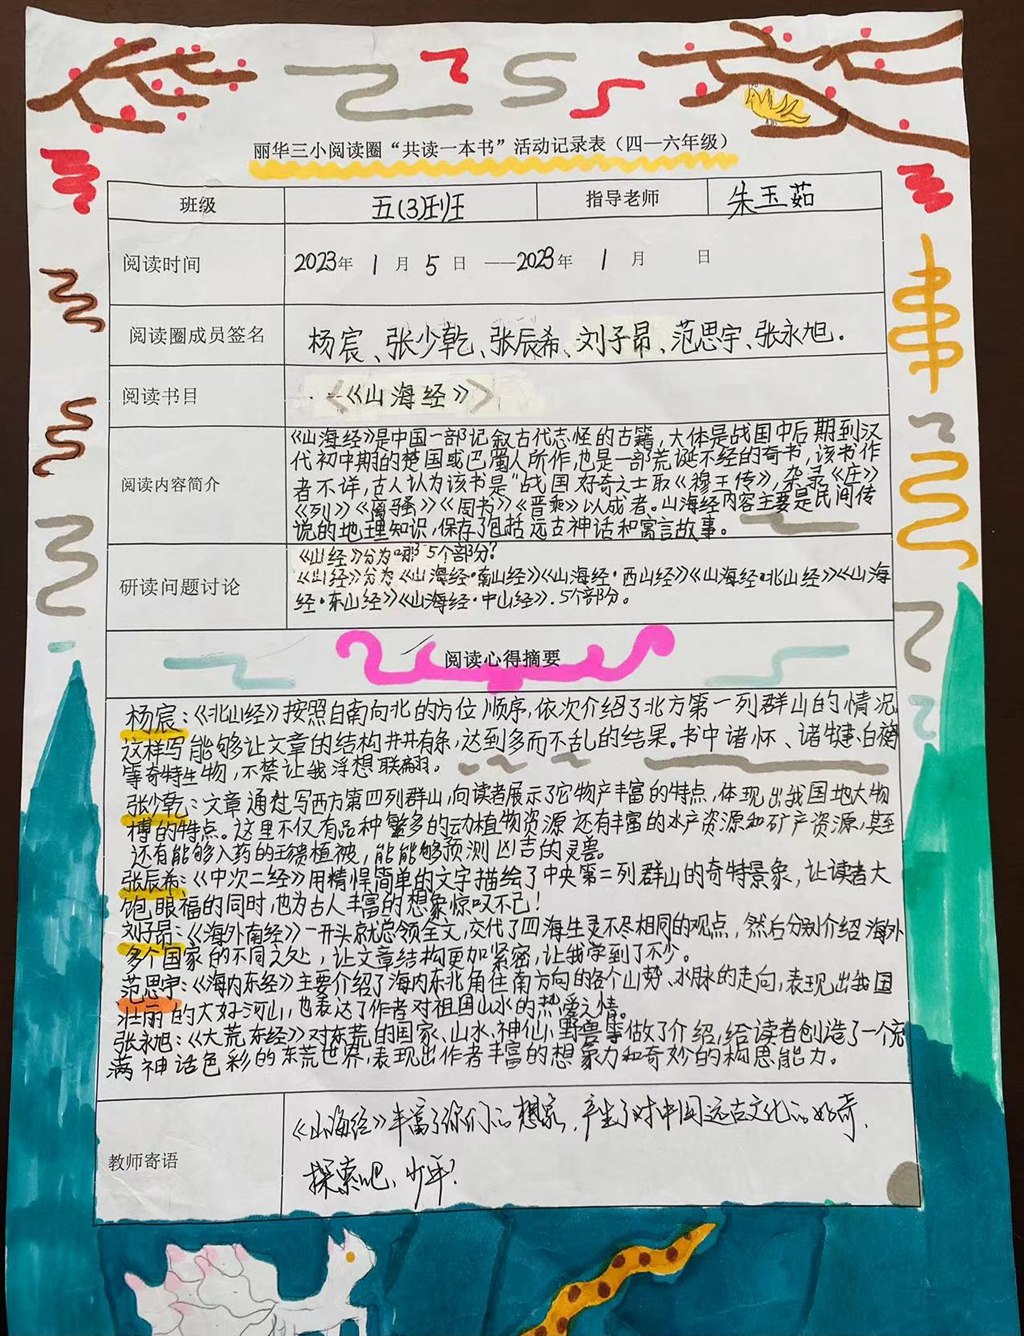 丽华三小阅读圈“共读一本书”活动记录表（四—六年级）
班级 五(3)班 指导老师 朱玉茹
阅读时间 2023年 1 月 5 日 ——2023年 1 月 日
阅读圈成员签名 杨宸、张少乾、张辰希、刘子昂、范思宇、张永旭.
阅读书目 《《山海经》》
阅读内容简介
《山海经》是中国一部记叙古代志怪的古籍,大体是战国中后期到汉
代初中期的楚国或巴蜀人所作,也是一部荒诞不经的奇书,该书作
者不详,古人认为该书是“战国好奇之士取《穆王传》,杂录《庄》
《列》《离骚》《周书》《晋乘》以成者。山海经内容主要是民间传
说的地理知识,保存了包括远古神话和寓言故事。
研读问题讨论
《山经》分为哪5个部分?
《山经》分为《山海经·南山经》《山海经·西山经》《山海经·北山经》《山海
经·东山经》《山海经·中山经》.5个部分。
阅读心得摘要
杨宸:《北山经》按照自南向北的方位顺序,依次介绍了北方第一列群山的情况
这样写能够让文章的结构井井有条,达到多而不乱的结果。书中诸怀、诸犍、白
等奇特生物,不禁让我浮想联翩。
张少乾:文章通过写西方第四列群山,向读者展示了它物产丰富的特点,体现出我国地大物
博的特点。这里不仅有品种繁多的动植物资源 还有丰富的水产资源和矿产资源,甚至
还有能够入药的植被,能能够预测凶吉的灵兽。
张辰希:《中次二经》用精悍简单的文字描绘了中央第二列群山的奇特景象,让读者大
饱眼福的同时,也为古人丰富的想象惊叹不已!
刘子昂:《海外南经》一开头就总领全文,交代了四海生灵不尽相同的观点,然后分别介绍海外
多个国家的不同之处,让文章结构更加紧密,让我学到了不少。
范思宇:《海内东经》主要介绍了海内东北角往南方向的各个山势、水脉的走向,表现出我国
壮丽的大好河山,也表达了作者对祖国山水的热爱之情。
张永旭:《大荒东经》对东荒的国家、山水、神仙、野兽等做了介绍,给读者创造了一个充
满神话色彩的东荒世界,表现出作者丰富的想象力和奇妙的构思能力。
教师寄语
《山海经》丰富了你们的想象,产生了对中国远古文化的好奇,
探索吧,少年!